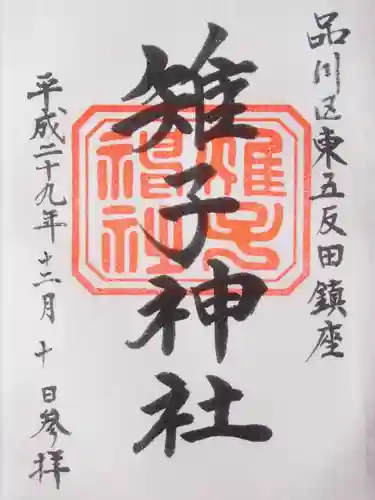 品川区東五反田鎮座
雉子神社
平成二十九年十二月十日参拝